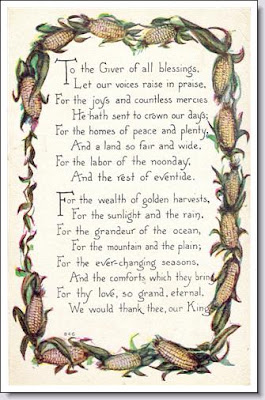 To the Giver of all blessings,
Let our voices raise in praise,
For the joys and countless mercies
He hath sent to crown our days;
For the homes of peace and plenty,
And a land so fair and wide,
For the labor of the noonday,
And the rest of eventide.
For the wealth of golden harvests,
For the sunlight and the rain,
For the grandeur of the ocean,
For the mountain and the plain;
For the ever-changing seasons,
And the comforts which they bring,
For thy love, so grand, eternal,
We would thank thee, our King